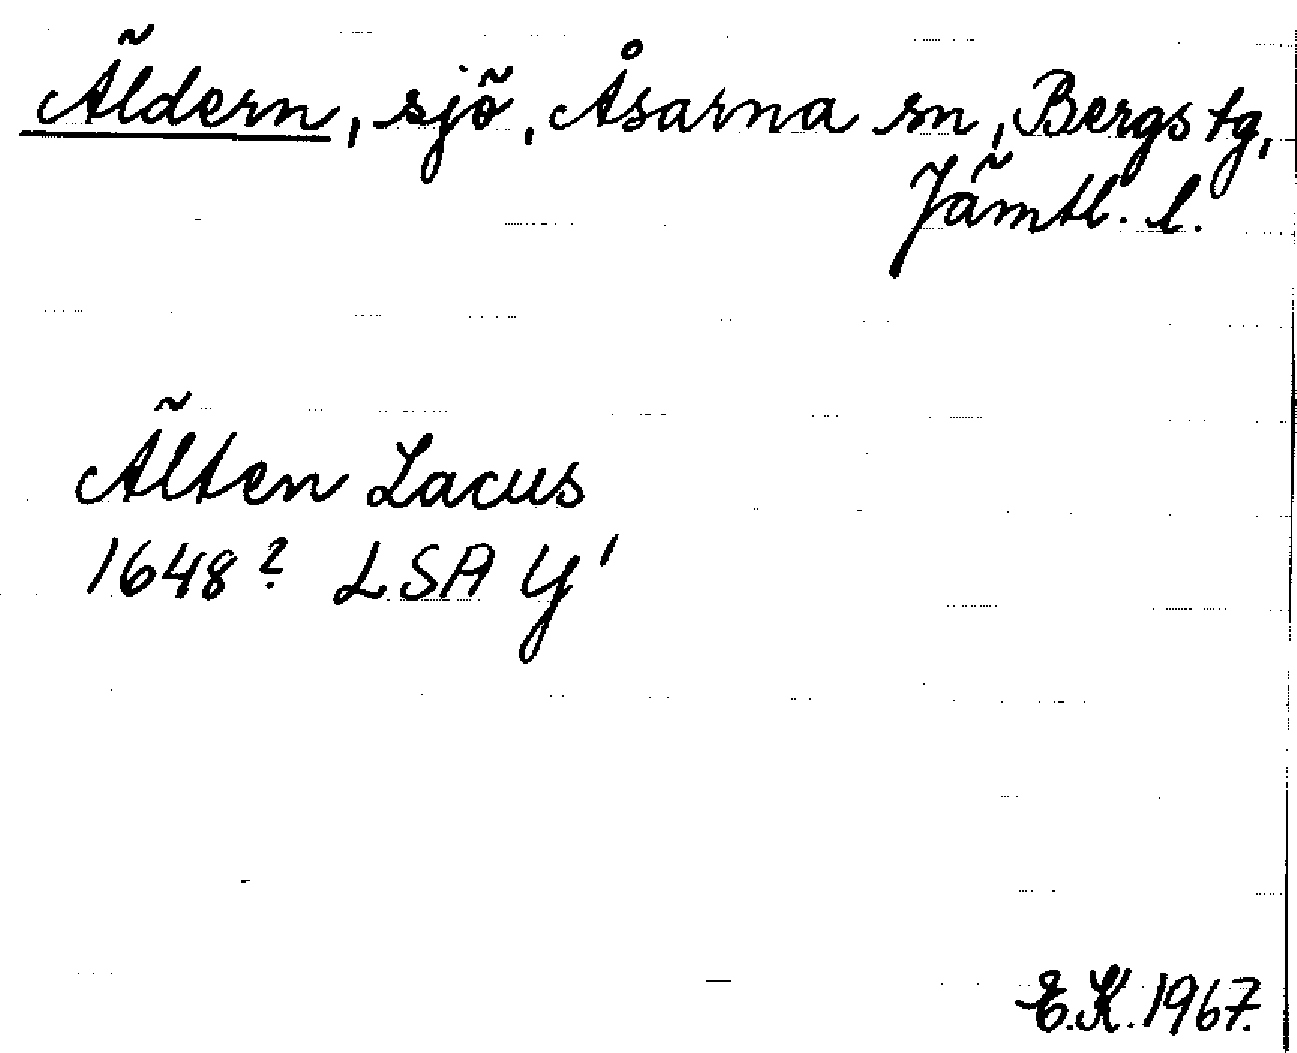 Äldern, sjö, Åsarna sn, Bergs tg,
Jämtl. l.
Älten Lacus
1648? LSA Y'
E.K. 1967.